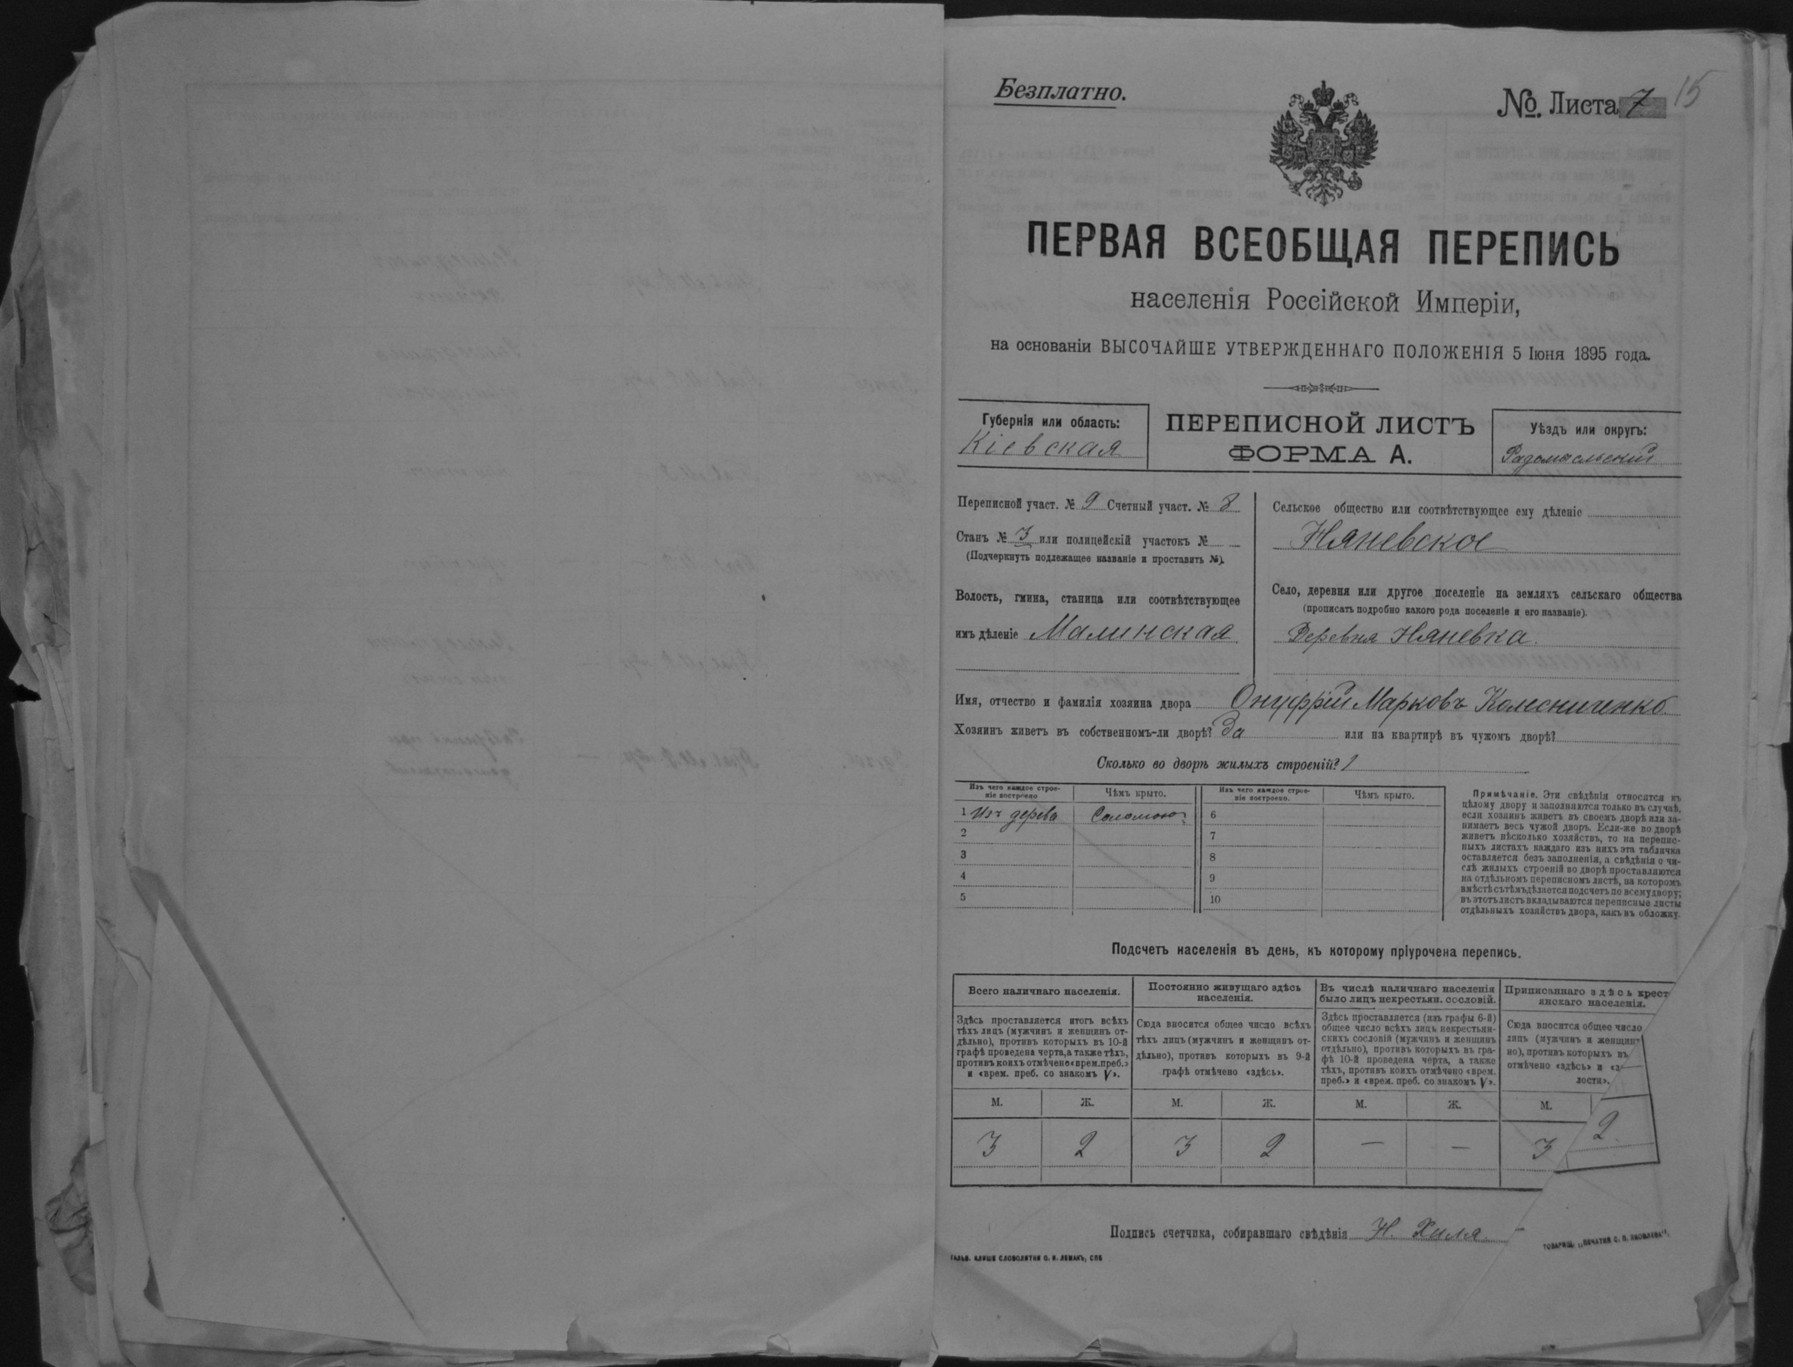 Безплатно.
№. Листа 7
15
ПЕРВАЯ ВСЕОБЩАЯ ПЕРЕПИСЬ
населенія Россійской Имперіи,
на основаніи ВЫСОЧАЙШЕ УТВЕРЖДЕННАГО ПОЛОЖЕНІЯ 5 Іюня 1895 года.
Губернія или область:
Кіевская
ПЕРЕПИСНОЙ ЛИСТЪ
ФОРМА А.
Уѣздъ или округъ:
Радомысльский
Переписной участ. № 9 Счетный участ. № 8
Станъ № 3 или полицейскій участокъ №
(Подчеркнуть подлежащее названіе и проставить №).
Волость, гмина, станица или соотвѣтствующее
имъ дѣленіе Малинская
Сельское общество или соотвѣтствующее ему дѣленіе
Няневское
Село, деревня или другое поселеніе на земляхъ сельскаго общества
(прописать подробно какого рода поселеніе и его названіе).
Деревня Няневка.
Имя, отчество и фамилія хозяина двора Онуфрій Марковъ Колесниченко
Хозяинъ живетъ въ собственномъ-ли дворѣ? Да или на квартирѣ въ чужомъ дворѣ?
Сколько во дворѣ жилыхъ строеній? 1
Изъ чего каждое строе-
ніе построено
Чѣмъ крыто.
Изъ чего каждое строе-
ніе построено.
Чѣмъ крыто.
1 Изъ дерева Соломою 6
2 7
3 8
4 9
5 10
Примѣчаніе. Эти свѣдѣнія относятся къ
цѣлому двору и заполняются только въ случаѣ,
если хозяинъ живетъ въ своемъ дворѣ или за-
нимаетъ весь чужой дворъ. Если-же во дворѣ
живетъ нѣсколько хозяйствъ, то на перепис-
ныхъ листахъ каждаго изъ нихъ эта табличка
оставляется безъ заполненія, а свѣдѣнія о чи-
слѣ жилыхъ строеній во дворѣ проставляются
на отдѣльномъ переписномъ листѣ, на которомъ
вмѣстѣ съ тѣмъ дѣлается подсчетъ по всему двору;
въ этотъ листъ вкладываются переписные листы
отдѣльныхъ хозяйствъ двора, какъ въ обложку.
Подсчетъ населенія въ день, къ которому пріурочена перепись.
Всего наличнаго населенія.
Здѣсь проставляется итогъ всѣхъ
тѣхъ лицъ (мужчинъ и женщинъ от-
дѣльно), противъ которыхъ въ 10-й
графѣ проведена черта, а также тѣхъ,
противъ коихъ отмѣчено «врем. преб.»
и «врем. преб. со знакомъ V».
Постоянно живущаго здѣсь
населенія.
Сюда вносится общее число всѣхъ
тѣхъ лицъ (мужчинъ и женщинъ от-
дѣльно), противъ которыхъ въ 9-й
графѣ отмѣчено «здѣсь».
Въ числѣ наличнаго населенія
было лицъ некрестьян. сословій.
Здѣсь проставляется (изъ графы 6-й)
общее число всѣхъ лицъ некрестьян-
скихъ сословій (мужчинъ и женщинъ
отдѣльно), противъ которыхъ въ гра-
фѣ 10-й проведена черта, а также
тѣхъ, противъ коихъ отмѣчено «врем.
преб.» и «врем. преб. со знакомъ V».
Приписаннаго здѣсь крест
янскаго населенія.
Сюда вносится общее число
лицъ (мужчинъ и женщин
но), противъ которыхъ въ
отмѣчено «здѣсь» и «
лости».
М. Ж. М. Ж. М. Ж. М.
3 2 3 2 — — 3 2
Подпись счетчика, собиравшаго свѣдѣнія Н. Хиля
ГАЛЬВ. КЛИШЕ СЛОВОЛИТНИ О. И. ЛЕМАНЪ, СПБ
ТОВАРИЩ. „ПЕЧАТНЯ С. П. ЯКОВЛЕВА".